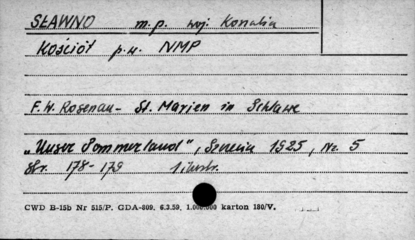 SŁAWNO m.p. woj. Koszalin
Kościół p.w. NMP
F.W. Rosenau - St. Marien in Schlawe
"Unser Pommerland", Szczecin 1925, Nr. 5
Str. 178-179 1 ilustr.
CWD B-15b Nr 515/P. GDA-809, 6.3.59, 1.000.000 karton 180/V.